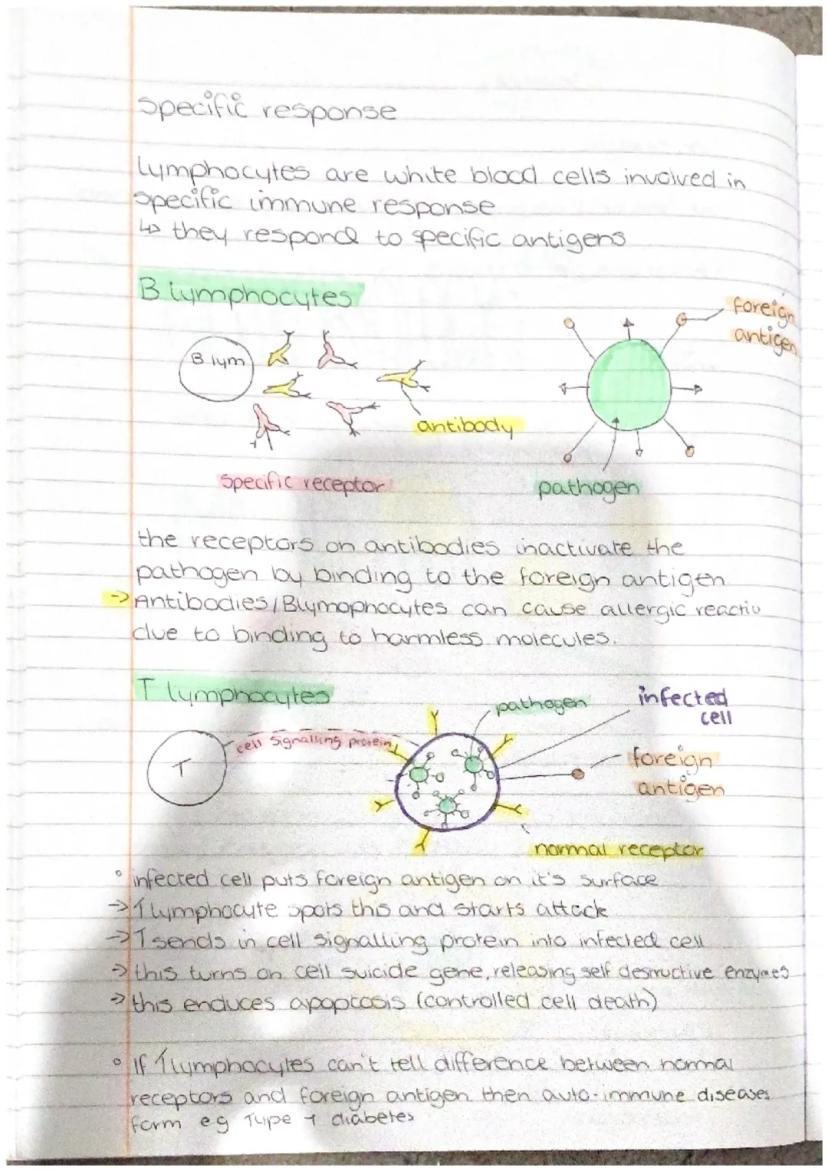 Specific response
Lymphocytes are white blood cells involved in
specific immune response
↳ they respond to specific antigens
B lymphocytes
foreign
antigen
B lym
antibody
specific receptor
pathogen
the receptors on antibodies inactivate the
pathogen by binding to the foreign antigen
→ Antibodies/Blymophocytes can cause allergic reactio
due to binding to harmless molecules.
T lymphocytes
pathogen
infected
cell
cell signalling protein
T
foreign
antigen
normal receptor
° infected cell puts foreign antigen on it's surface
→ T lymphocyte spots this and starts attack
→ T sends in cell signalling protein into infected cell
→ this turns on cell suicide gene, releasing self destructive enzymes
→ this enduces apoptosis (controlled cell death)
° If T lymphocytes can't tell difference between normal
receptors and foreign antigen then auto-immune diseases
form eg Type 1 diabetes